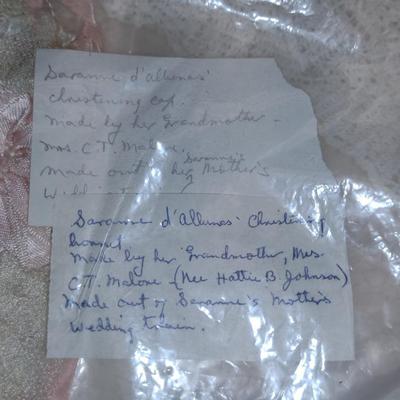 Saranne d'Allunas'
christening cap.
Made by her Grandmother -
Mrs. C.T. Malone
Saranne's
Made out of her Mother's
Saranne d'Allunas' Christening
bonnet
Made by her Grandmother, Mrs.
C.T. Malone - (Nee Hattie B. Johnson)
Made out of Saranne's Mother's
wedding train.